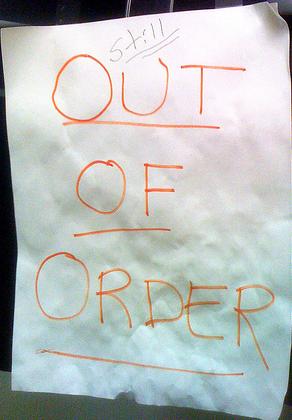 Still
OUT
OF
ORDER